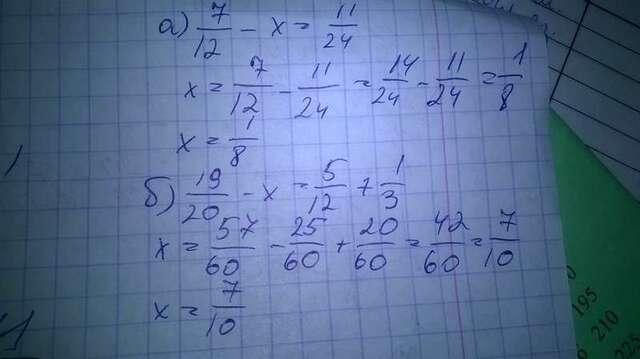 а) 7/12 - x = 11/24
x = 7/12 - 11/24 = 14/24 - 11/24 = 1/8
x = 1/8
б) 19/20 - x = 5/12 + 1/3
x = 57/60 - 25/60 + 20/60 = 42/60 = 7/10
x = 7/10
195
210